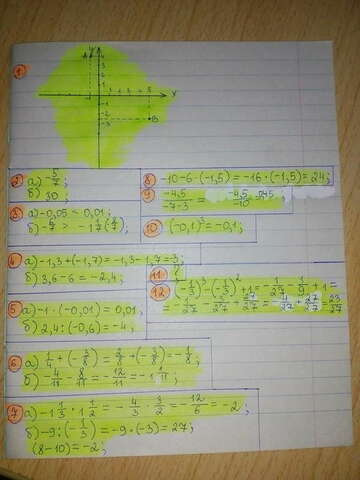 1
A
y
x
B
2 а) -5/7;
б) 30;
3 а) -0,05 < 0,01;
б) -6/7 > -1 1/7 (8/7)
4 а) -1,3+(-1,7) = -1,3-1,7 = -3;
б) 3,6-6 = -2,4;
5 а) -1·(-0,01) = 0,01,
б) 2,4:(-0,6) = -4,
6 а) 1/4+(-3/8) = 2/8+(-3/8) = -1/8;
б) -4/11-8/11 = -12/11 = -1 1/11;
7 а) -1 1/3·1 1/2 = -4/3·3/2 = -12/6 = -2;
б) -9:(-1/3) = -9·(-3) = 27;
(8-10) = -2,
8 -10-6·(-1,5) = -16·(-1,5) = 24;
9 -4,5/-7-3 = -4,5/-10
10 (-0,1)³ = -0,1;
11
12 (-1/3)³-(-1/3)²+1 = -1/27-1/9+1 =
= -1/27-3/27+27/27 = -4/27+27/27 = 23/27